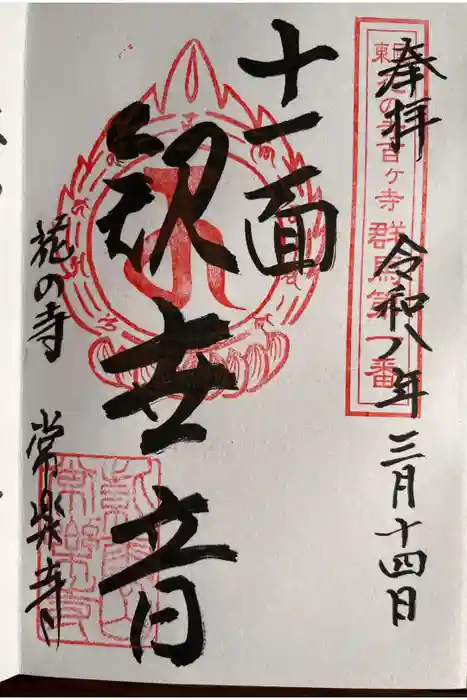 奉拝
令和八年三月十四日
東国花の寺百ヶ寺 群馬第一番
十一面
観世音
花の寺 常楽寺